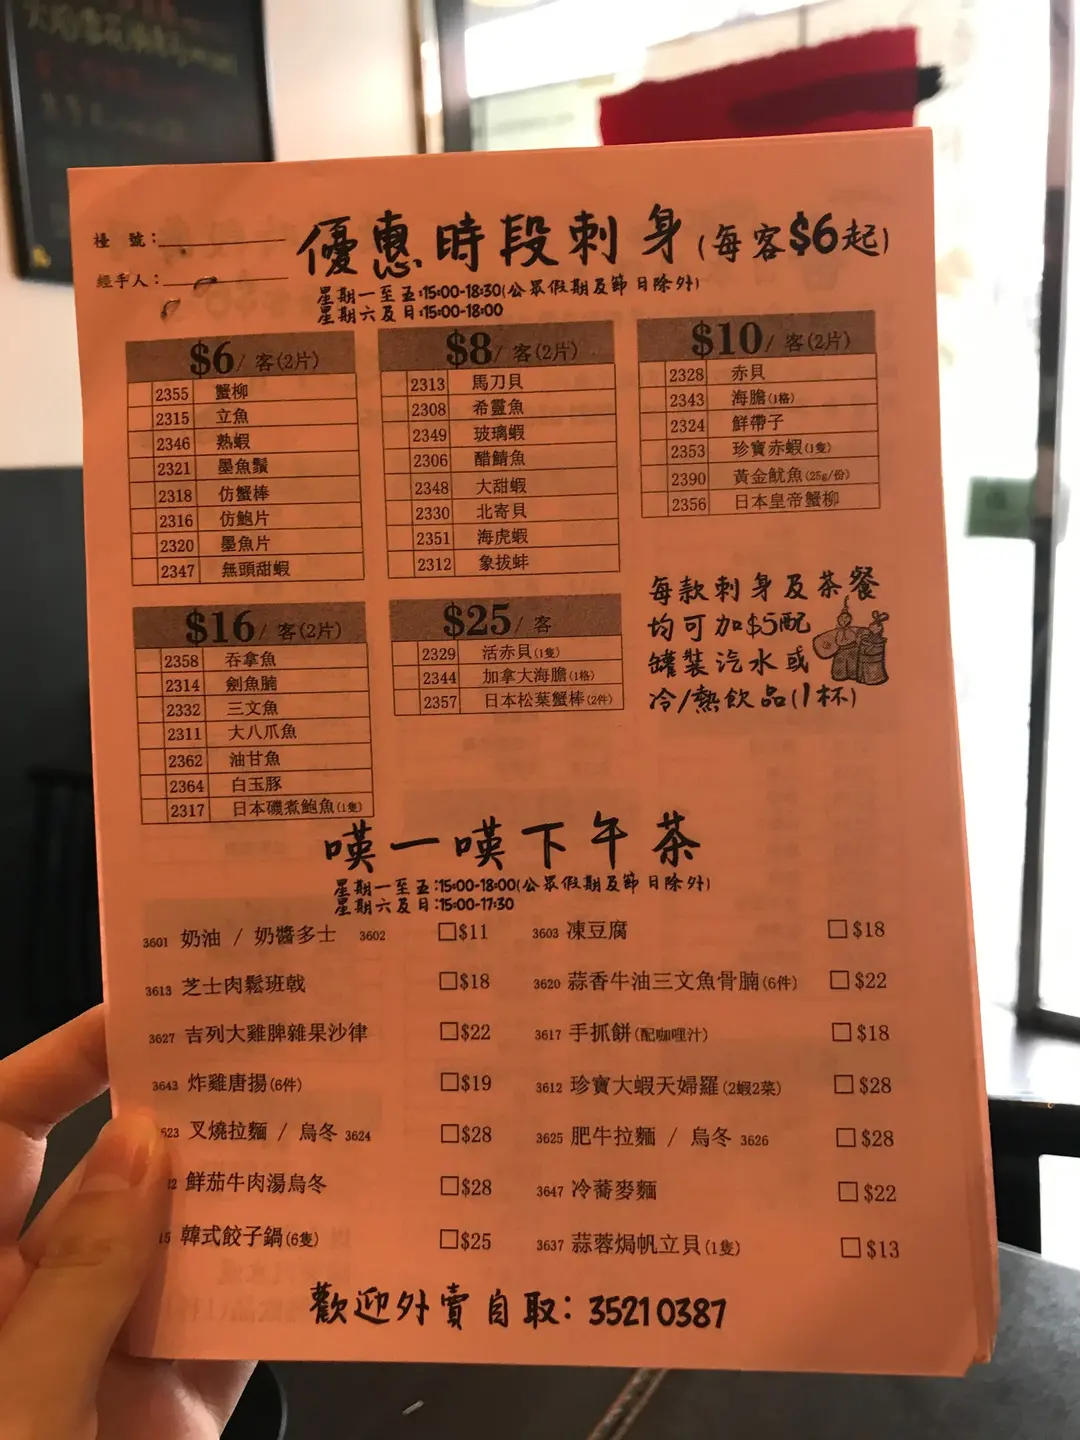 檯 號：
優惠時段刺身(每客$6起)
經手人：
星期一至五：15:00-18:30(公眾假期及節日除外)
星期六及日：15:00-18:00
$6/ 客(2片)
2355 蟹柳
2315 立魚
2346 熟蝦
2321 墨魚鬚
2318 仿蟹棒
2316 仿鮑片
2320 墨魚片
2347 無頭甜蝦
$8/ 客(2片)
2313 馬刀貝
2308 希靈魚
2349 玻璃蝦
2306 醋鯖魚
2348 大甜蝦
2330 北寄貝
2351 海虎蝦
2312 象拔蚌
$10/ 客(2片)
2328 赤貝
2343 海膽(1格)
2324 鮮帶子
2353 珍寶赤蝦(1隻)
2390 黃金魷魚(25g/份)
2356 日本皇帝蟹柳
$16/ 客(2片)
2358 吞拿魚
2314 劍魚腩
2332 三文魚
2311 大八爪魚
2362 油甘魚
2364 白玉豚
2317 日本磯煮鮑魚(1隻)
$25/ 客
2329 活赤貝(1隻)
2344 加拿大海膽(1格)
2357 日本松葉蟹棒(2件)
每款刺身及茶餐
均可加$5配
罐裝汽水或
冷/熱飲品(1杯)
嘆一嘆下午茶
星期一至五：15:00-18:00(公眾假期及節日除外)
星期六及日：15:00-17:30
3601 奶油 / 奶醬多士 3602 □$11
3603 凍豆腐 □$18
3613 芝士肉鬆班戟 □$18
3620 蒜香牛油三文魚骨腩(6件) □$22
3627 吉列大雞脾雜果沙律 □$22
3617 手抓餅(配咖哩汁) □$18
3643 炸雞唐揚(6件) □$19
3612 珍寶大蝦天婦羅(2蝦2菜) □$28
623 叉燒拉麵 / 烏冬 3624 □$28
3625 肥牛拉麵 / 烏冬 3626 □$28
2 鮮茄牛肉湯烏冬 □$28
3647 冷蕎麥麵 □$22
15 韓式餃子鍋(6隻) □$25
3637 蒜蓉焗帆立貝(1隻) □$13
歡迎外賣自取：35210387